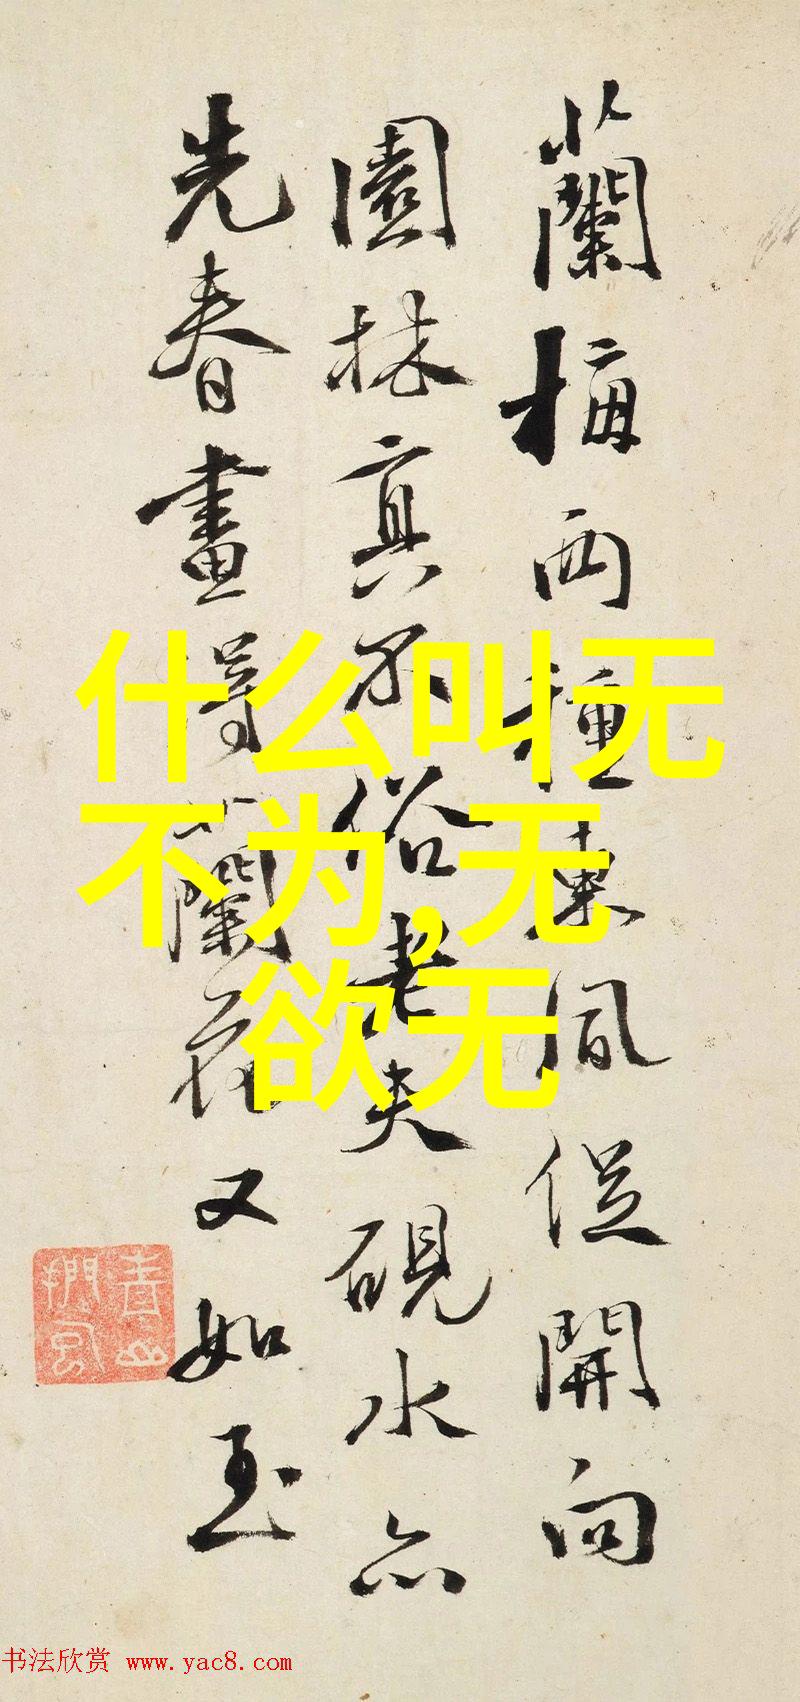 蘭梅两種東風從開向
園林真不俗老夫硯水亦
先春畫得蘭花又如玉
什么叫无
不为,无
欲无
书法欣赏 www.yac8.com